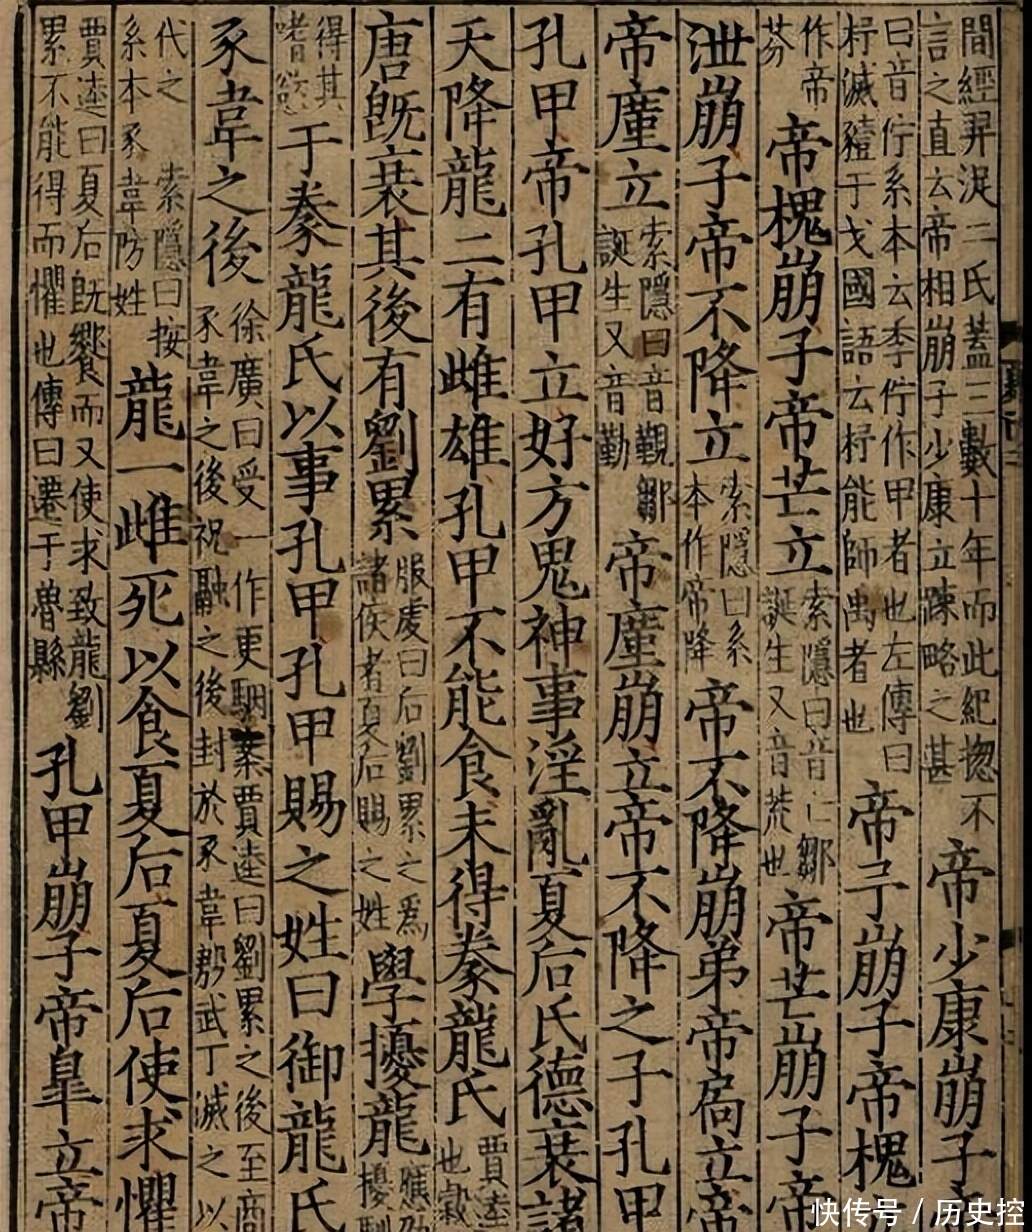 間經羿浞二氏蓋三數十年而此紀揔不
言之直云帝相崩子少康立踈略之甚
帝少康崩子
曰音佇系本云季佇作甲者也左傳曰
杼滅豷于戈國語云杼能師禹者也
帝予崩子帝槐
作帝
芬
帝槐崩子帝芒立
索隱曰音亡鄒
誕生又音荒也
帝芒崩子帝
泄崩子帝不降立
索隱曰系
本作帝降
帝不降崩弟帝扃立帝
帝廑立
索隱曰音覲鄒
誕生又音勤
帝廑崩立帝不降之子孔甲
孔甲帝孔甲立好方鬼神事淫亂夏后氏德衰諸
天降龍二有雌雄孔甲不能食未得豢龍氏
賈逵
也穀
唐既衰其後有劉累
服虔曰后劉累之為
諸侯者夏后賜之姓
學擾龍
應劭
擾馴
得其
嗜慾
于豢龍氏以事孔甲孔甲賜之姓曰御龍氏
豕韋之後
徐廣曰受一作更駰案賈逵曰劉累之後至商
豕韋之後祝融之後封於豕韋殷武丁滅之以
代之 索隱曰按
系本豕韋防姓
龍一雌死以食夏后夏后使求懼
賈逵曰夏后既饗而又使求致龍劉
累不能得而懼也傳曰遷于魯縣
孔甲崩子帝皐立帝
快传号/历史控